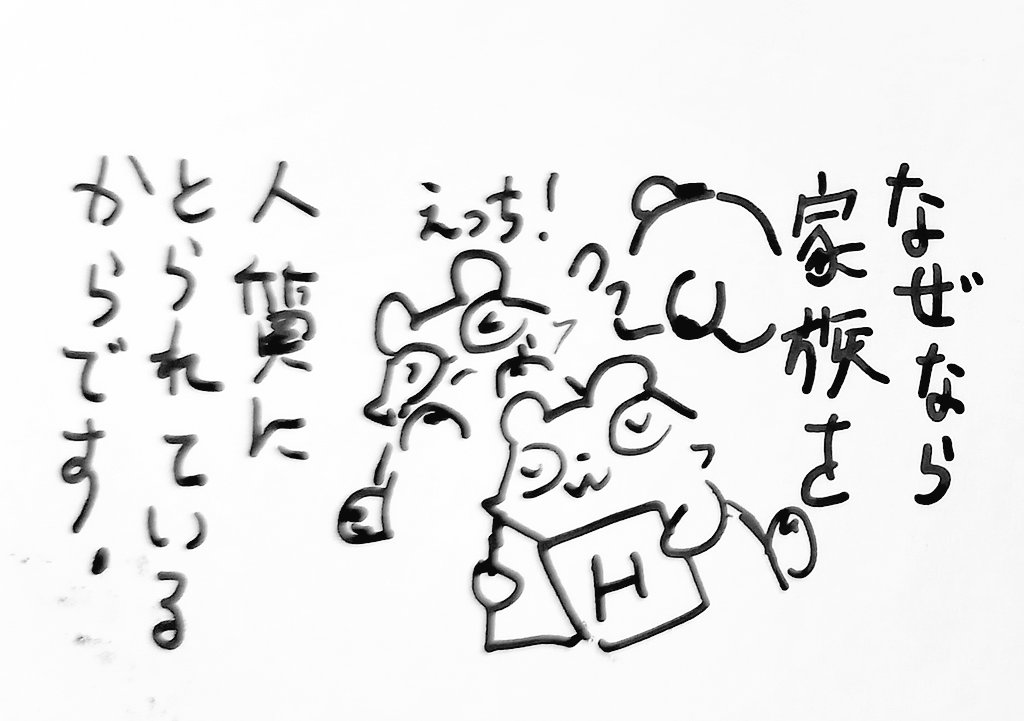 なぜなら
家族を
えっち!
H
人質に
とられている
からです.